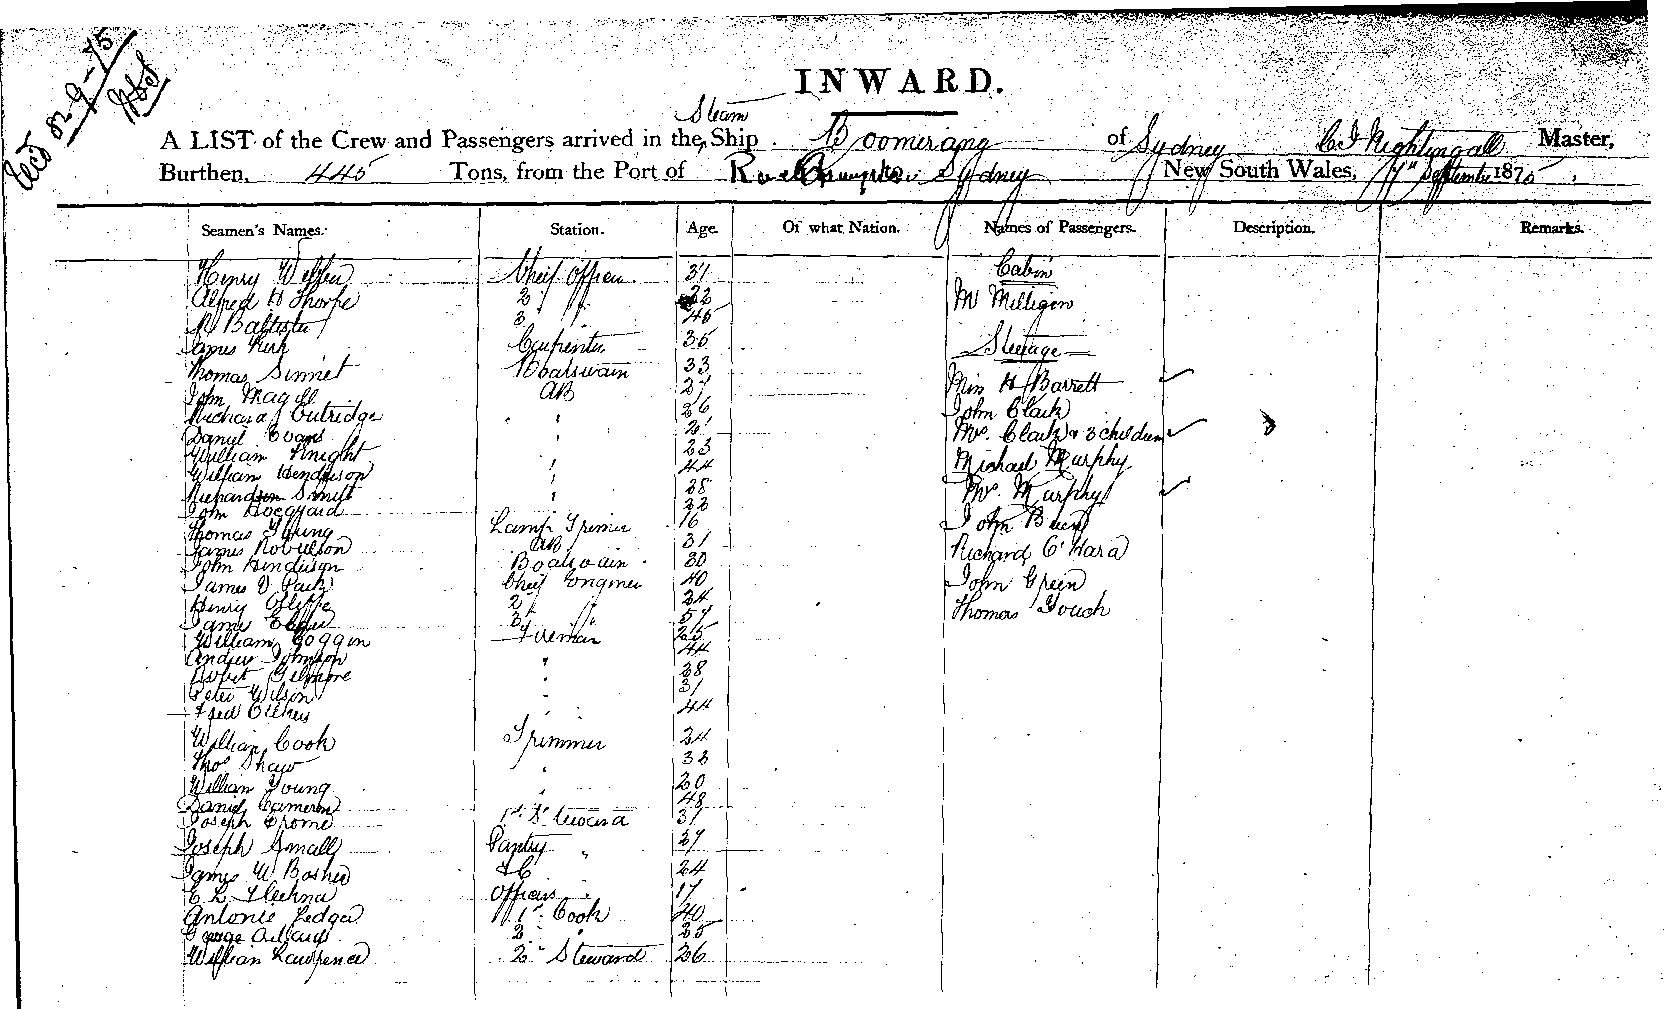 INWARD.
Steam
A LIST of the Crew and Passengers arrived in the Ship Boomerang of Sydney C J Nightingall Master,
Burthen, 445 Tons, from the Port of Sydney New South Wales, 7th September 1875.
Seamen's Names. Station. Age. Of what Nation. Names of Passengers. Description. Remarks.
Henry Cheif Officer 31 Cabin
Alfred H Thorpe 2 " 22 Mr Milligen
R Baptiste 3 " 45
James Kirk Carpenter 35 Steerage
Thomas Sinnet Boatswain 33
John Magill AB 27 Miss H Barrett
Richard Cutridge " 26 John Clark
Daniel Evans " Mrs. Clark & 3 children
William Knight 23
William Henderson " 44 Michael Murphy
Richardson Smith " 28 Mrs. Murphy
John 22
Thomas Young Lamp Trimer 16 John
James Robertson AB 31
John Henderson Boatswain 30 Richard O'Hara
James D Cheif Engineer 40 John Green
Henry 2 " 24
James 3 " 57 Thomas Gouch
William Goggin Fireman 25
Andrew Johnson " 44
Robert Gilmore " 28
Peter Wilson " 31
Fred " 44
William Cook Trimmer 24
Thos Shaw " 32
William Young " 20
Daniel Cameron 48
Joseph Crome 1st Steward 31
Joseph Small Pantry " 27
James W Bosher 24
E L Officers 17
Antonie Ledger 1st Cook 40
George 2 " 25
William Lawrence 2nd Steward 26